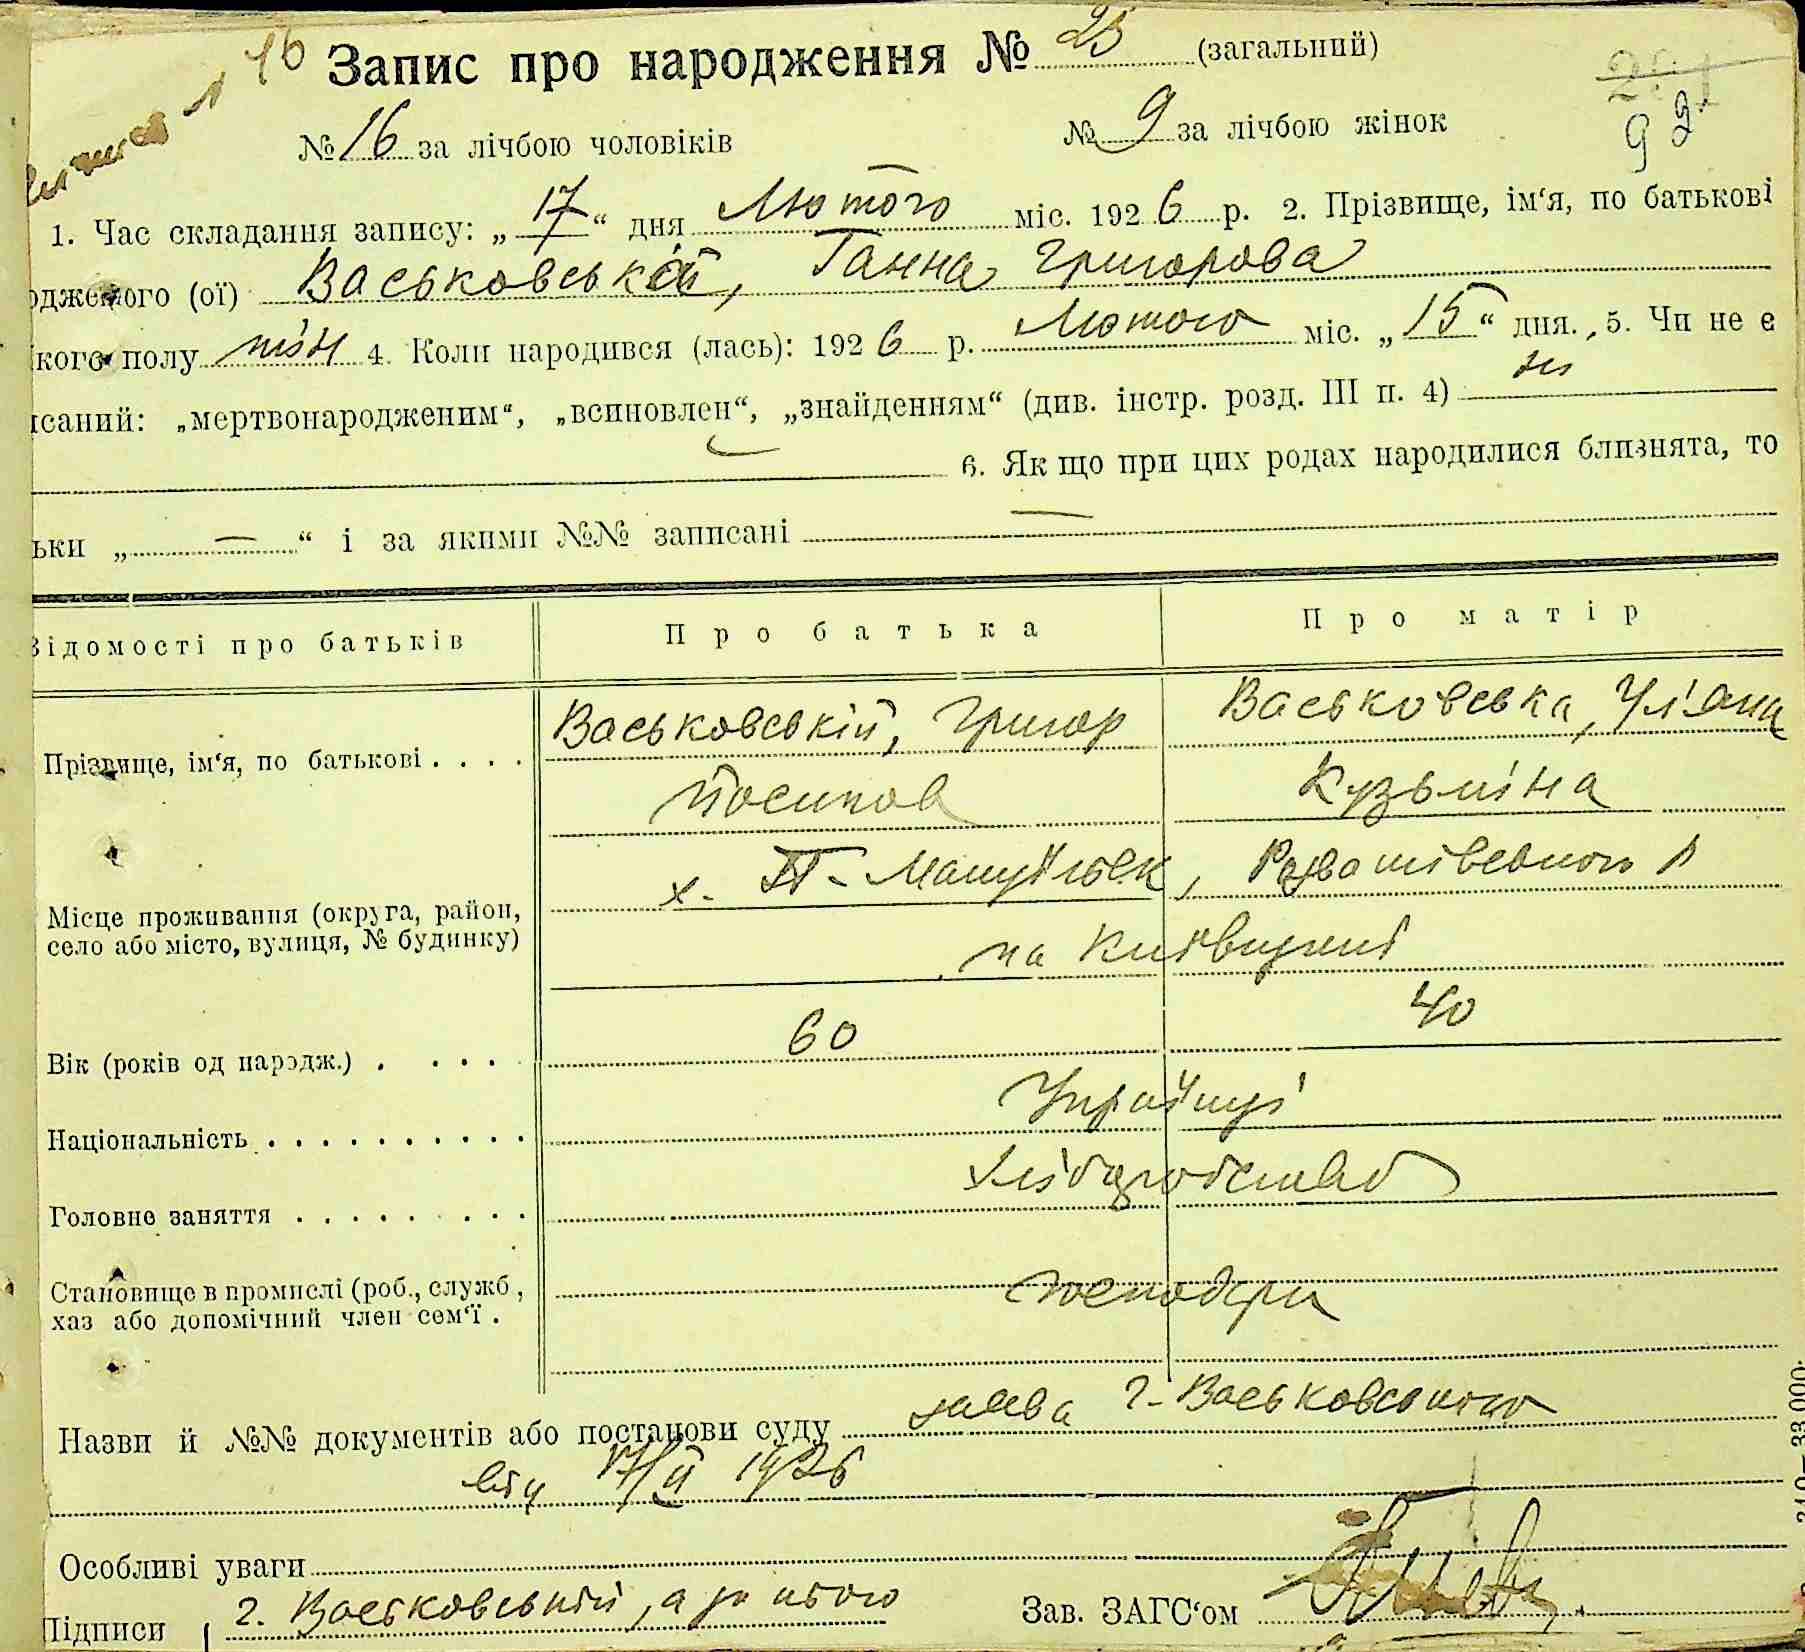 16 Запис про народження № 25 (загальний)
№ 16 за лічбою чоловіків № 9 за лічбою жінок
99
1. Час складання запису: „17“ дня Лютого міс. 1926 р. 2. Прізвище, ім‘я, по батькові
одженого (ої) Васьковській, Ганна Григорова
кого полу жін 4. Коли народився (лась): 1926 р. Лютого міс. „15“ дня. 5. Чи не є
исаний: „мертвонародженим“, „всиновлен“, „знайденням“ (див. інстр. розд. III п. 4) ні
— 6. Як що при цих родах народилися близнята, то
ьки „ — “ і за якими №№ записані —
Відомості про батьків Про батька Про матір
Прізвище, ім‘я, по батькові . . . . Васьковській, Григор Васьковська, Ул'яна
Йосипов Кузьміна
Місце проживання (округа, район, х. П-Мануїльск, Р
село або місто, вулиця, № будинку) на Київщині
Вік (років од народж.) . . . . 60 40
Національність . . . . . . . . . . Українці
Головне заняття . . . . . . . . . Хліборобство
Становище в промислі (роб., служб, Господари
хаз або допомічний член сем‘ї .
Назви й №№ документів або постанови суду заява г. Васьковського
від 17/II 1926
Особливі уваги
Підписи { г. Васьковський, а за нього Зав. ЗАГС‘ом